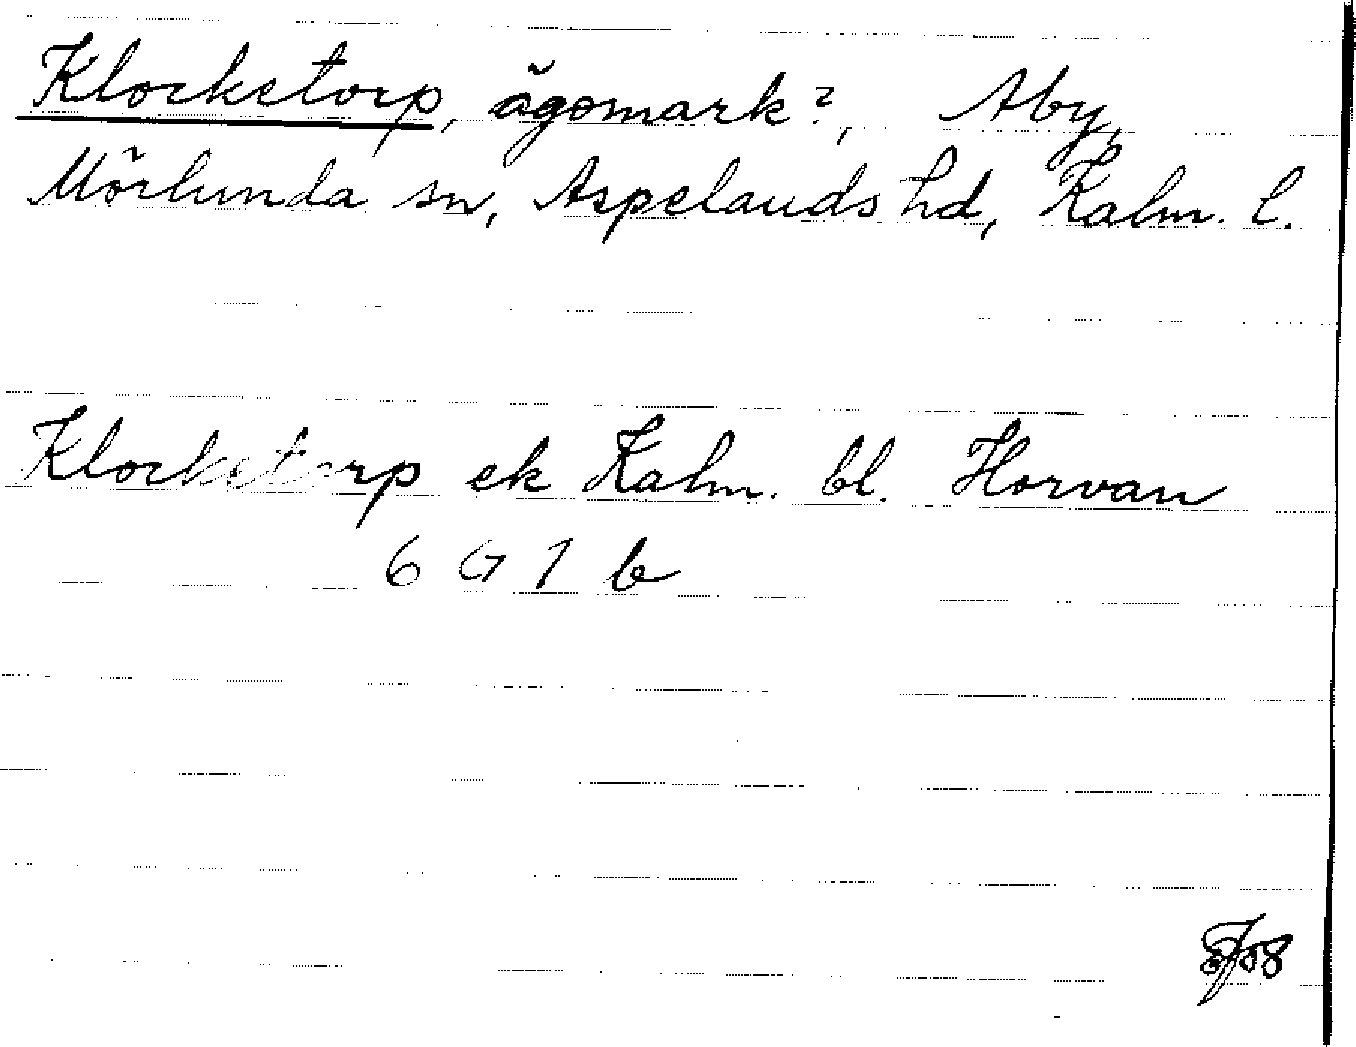 Klocketorp, ägomark?, Aby,
Mörlunda sn, Aspelands hd, Kalm. l.
Klocketorp ek Kalm. bl. Horvan
6 G 1 b